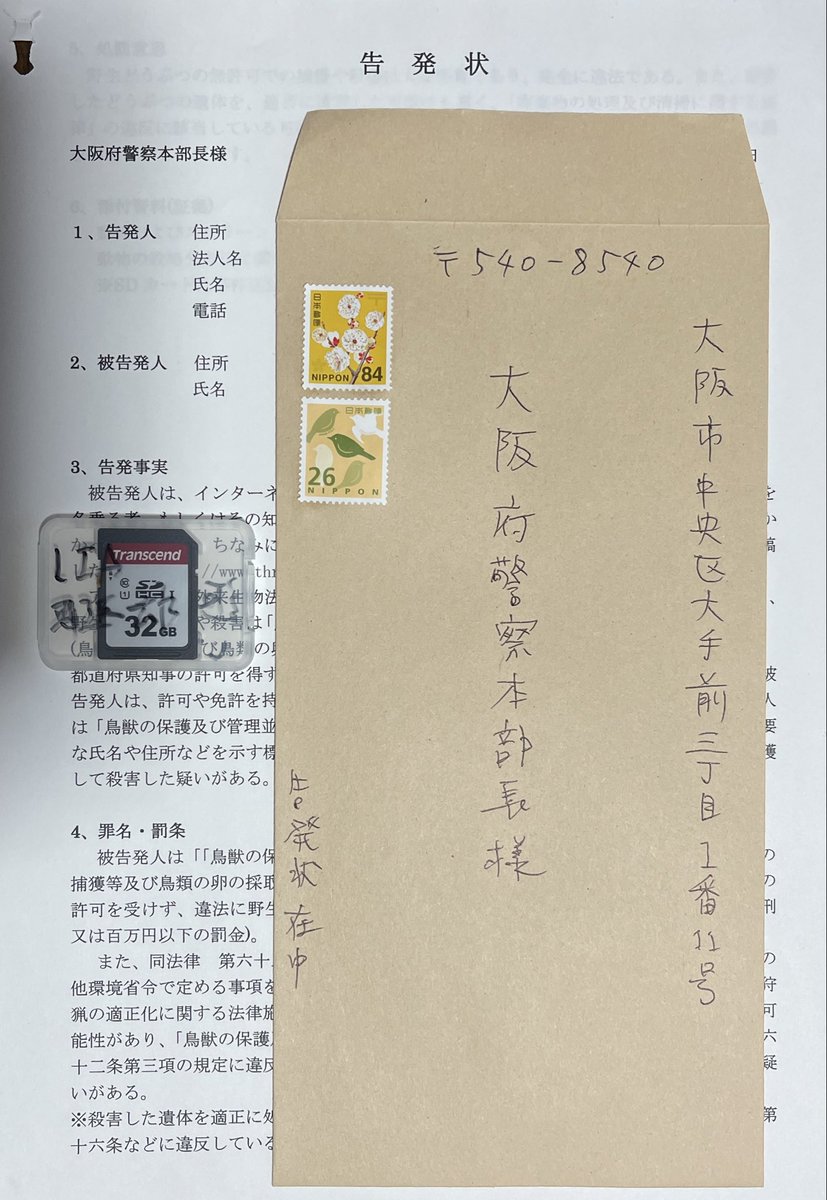 告発状
大阪府警察本部長様
日
1、告発人 住所
法人名
氏名
電話
2、被告発人 住所
氏名
3、告発事実
被告発人は、インターネ
を
ちなみに
か
稿
//www.thr
外来生物法
や殺害は「
都道府県知事の許可を得ず
被
告発人は、許可や免許を持
人
は「鳥獣の保護及び管理並
要
な氏名や住所などを示す標
獲
して殺害した疑いがある。
4、罪名・罰条
被告発人は「「鳥獣の保
の
捕獲等及び鳥類の卵の採取
の
許可を受けず、違法に野生
刑
又は百万円以下の罰金)。
また、同法律 第六十
の
他環境省令で定める事項を
狩
猟の適正化に関する法律施
可
能性があり、「鳥獣の保護
六
十二条第三項の規定に違反
疑
いがある。
※殺害した遺体を適正に処
第
十六条などに違反している
Transcend
SD
HC I
10
U1
32GB
〒540-8540
大阪市中央区大手前三丁目1番11号
大阪府警察本部長様
告発状在中
日本郵便
NIPPON 84
日本郵便
26
NIPPON